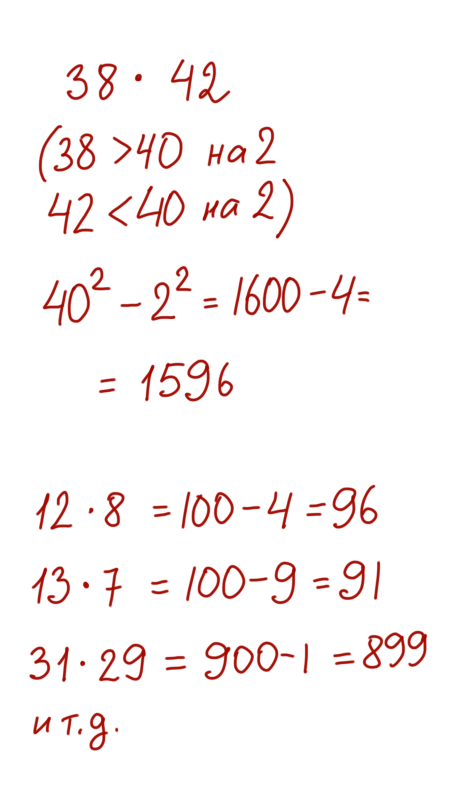 38 · 42
(38 > 40 на 2
42 < 40 на 2)
40² – 2² = 1600 – 4 =
= 1596
12 · 8 = 100 – 4 = 96
13 · 7 = 100 – 9 = 91
31 · 29 = 900 – 1 = 899
и т.д.